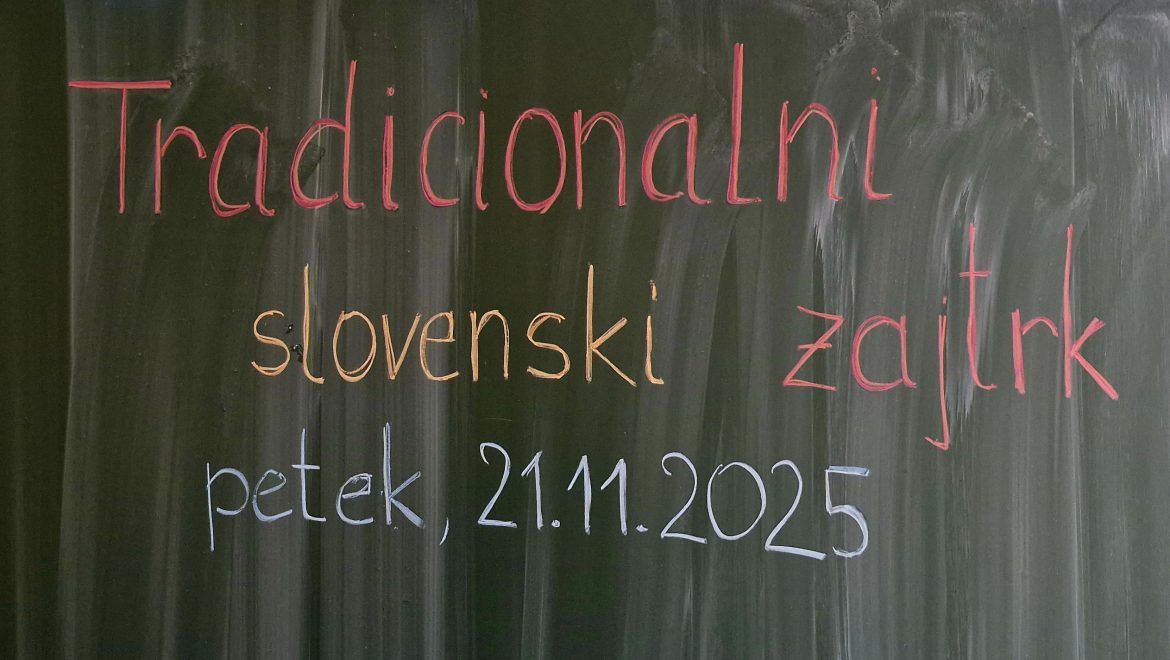 Tradicionalni
slovenski zajtrk
petek, 21.11.2025